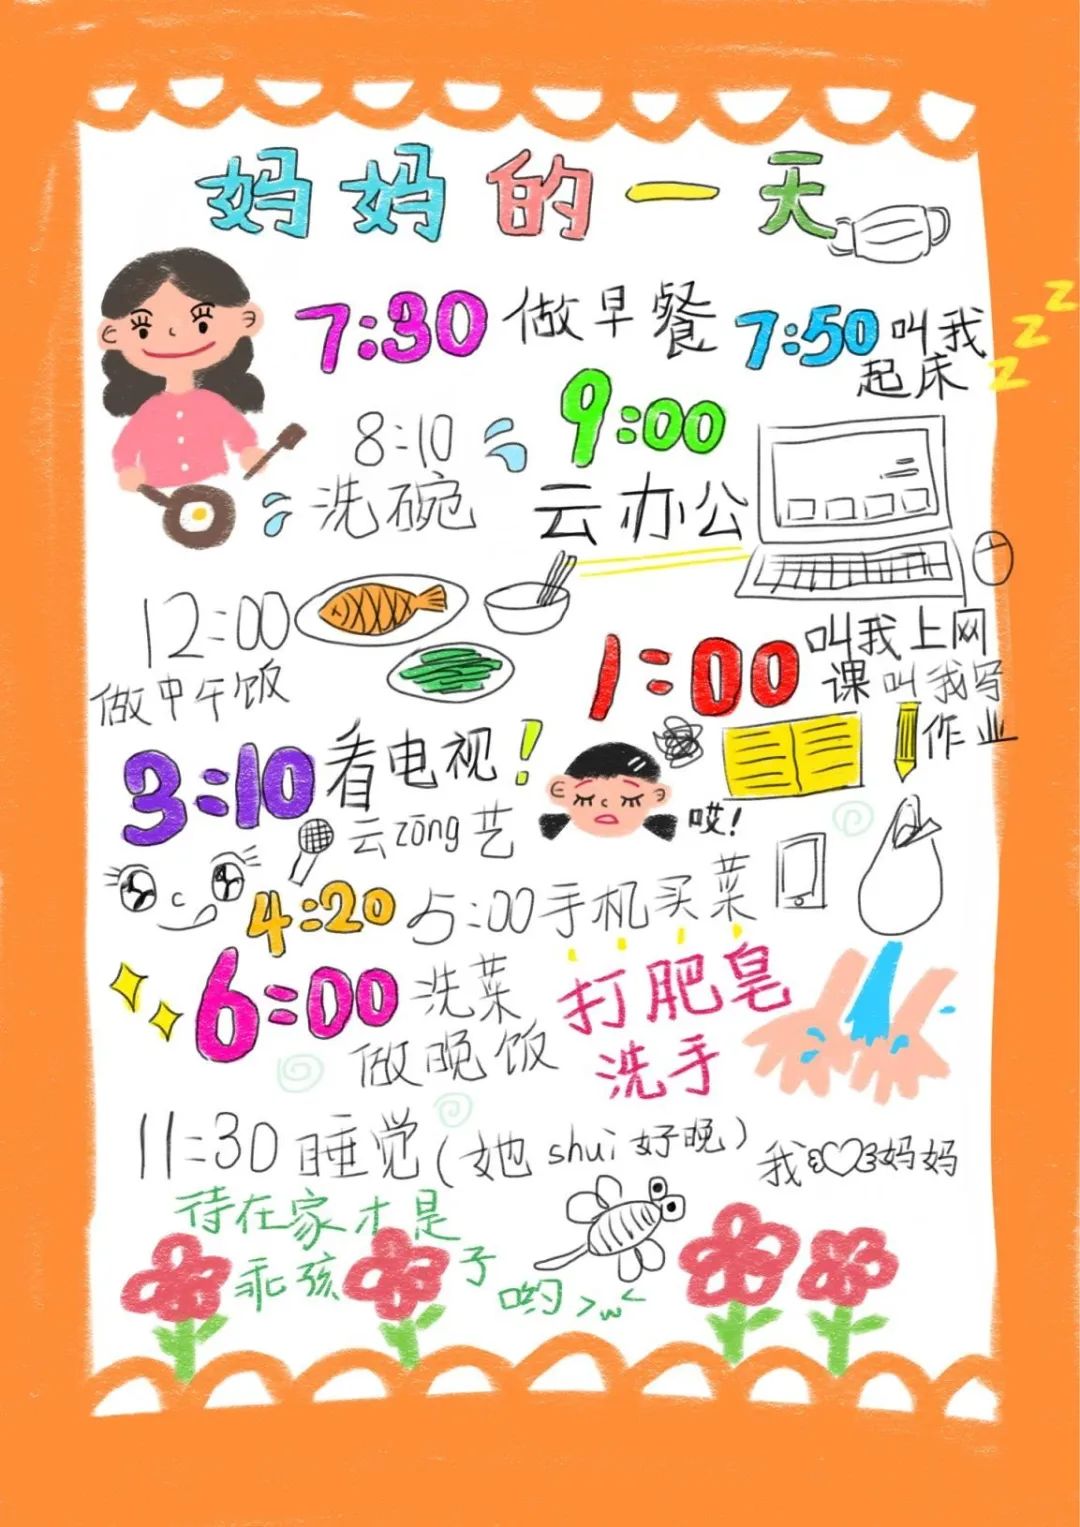 妈妈的一天
7:30 做早餐
7:50 叫我
起床
zzz
8:10
洗碗
9:00
云办公
12:00
做中午饭
1:00 叫我上网
课 叫我写
作业
3:10 看电视!
云zōng艺
哎!
4:20
5:00 手机买菜
6:00 洗菜
做晚饭
打肥皂
洗手
11:30 睡觉(她shui好晚)
我妈妈
待在家才是
乖孩子
哟>w<